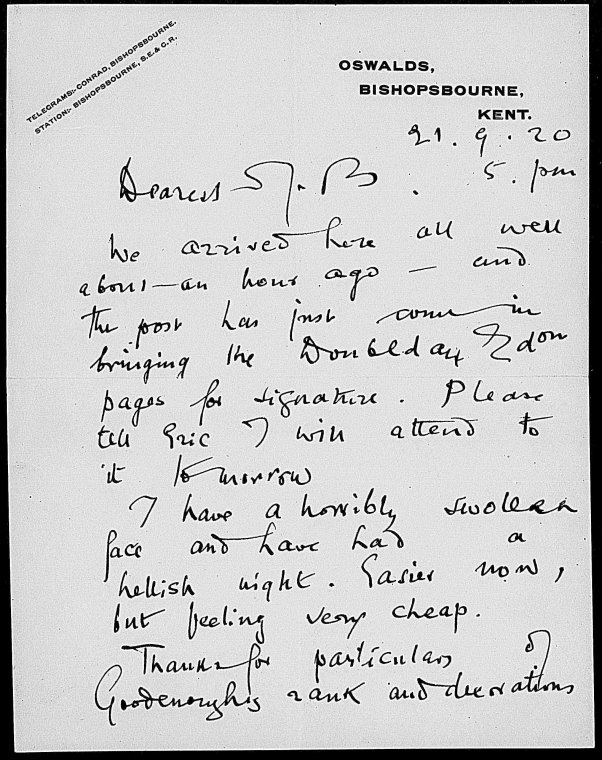 TELEGRAMS:- CONRAD, BISHOPSBOURNE.
STATION:- BISHOPSBOURNE, S.E. & C.R.
OSWALDS,
BISHOPSBOURNE,
KENT.
21.9.20
5.pm
Dearest J. B.
We arrived here all well
about an hour ago — and
the post has just come in
bringing the Doubleday Edon
pages for signature. Please
tell Eric I will attend to
it to morrow
I have a horribly swollen
face and have had a
hellish night. Easier now,
but feeling very cheap.
Thanks for particulars of
Goodenough's rank and decorations